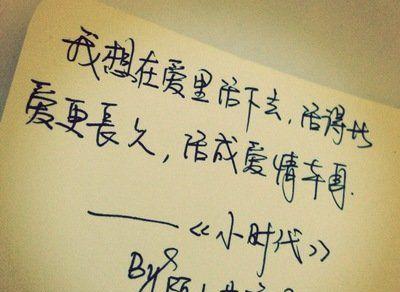 我想在爱里活下去,活得比
爱更長久,活成爱情本身.
——《小时代》
By